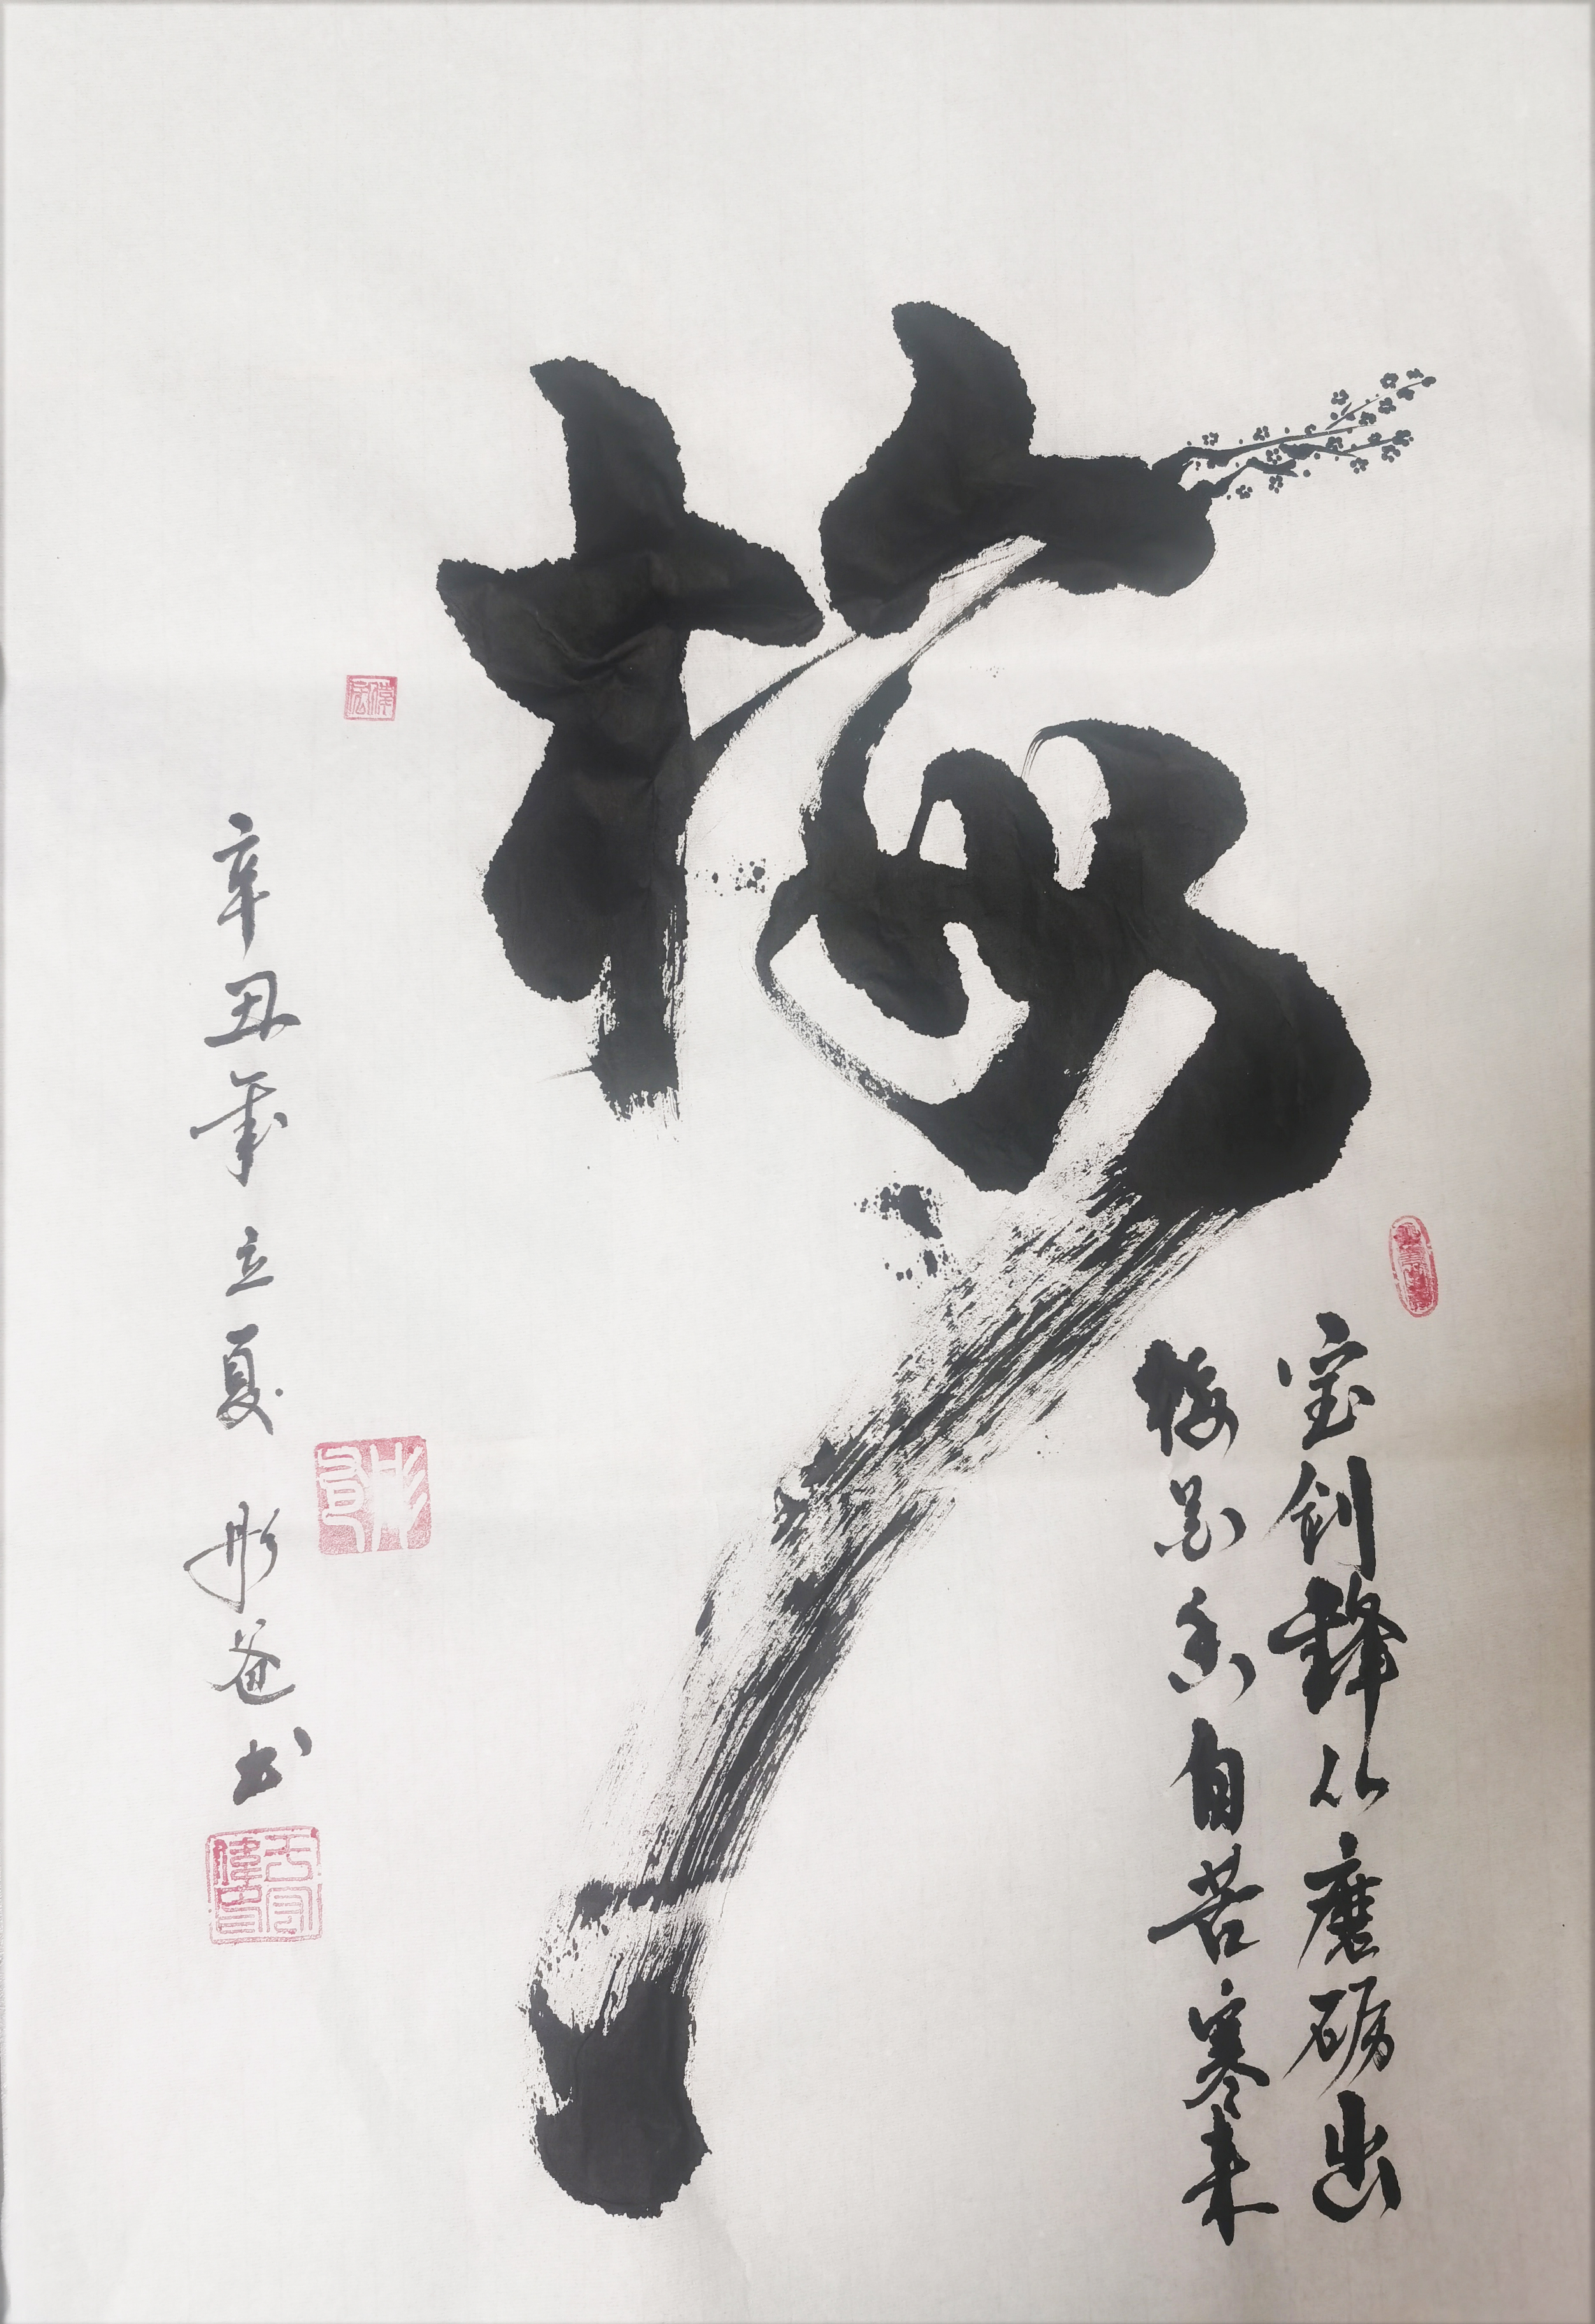 梅
宝剑锋从磨砺出
梅花香自苦寒来
辛丑年立夏 彤爸书